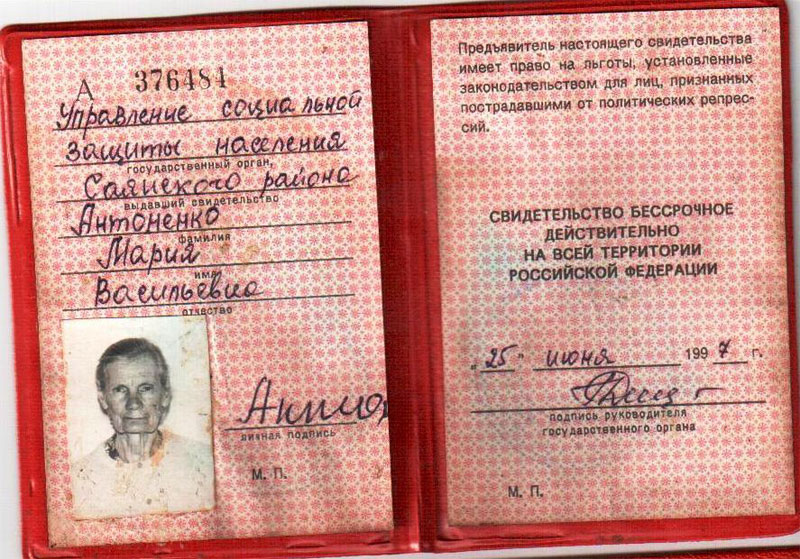 А 376484
Управление социальной
защиты населения
государственный орган,
Саянского района
выдавший свидетельство
Антоненко
фамилия
Мария
имя
Васильевна
отчество
личная подпись
М. П.
Предъявитель настоящего свидетельства
имеет право на льготы, установленные
законодательством для лиц, признанных
пострадавшими от политических репрес-
сий.
СВИДЕТЕЛЬСТВО БЕССРОЧНОЕ
ДЕЙСТВИТЕЛЬНО
НА ВСЕЙ ТЕРРИТОРИИ
РОССИЙСКОЙ ФЕДЕРАЦИИ
"25" июня 1997 г.
подпись руководителя
государственного органа
М. П.